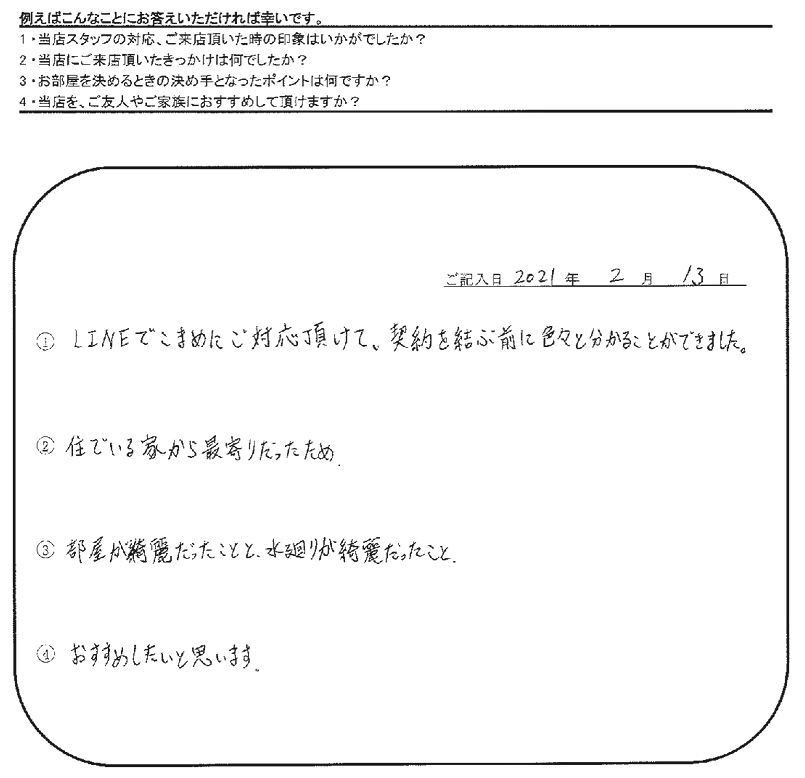 例えばこんなことにお答えいただければ幸いです。
1・当店スタッフの対応、ご来店頂いた時の印象はいかがでしたか？
2・当店にご来店頂いたきっかけは何でしたか？
3・お部屋を決めるときの決め手となったポイントは何ですか？
4・当店を、ご友人やご家族におすすめして頂けますか？
ご記入日 2021 年 2 月 13 日
① LINEでこまめにご対応頂けて、契約を結ぶ前に色々と分かることができました。
② 住でいる家から最寄りだったため.
③ 部屋が綺麗だったことと、水廻りが綺麗だったこと.
④ おすすめしたいと思います.